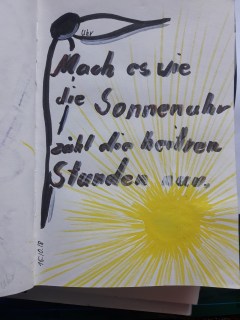 Uhr
Mach es wie
die Sonnenuhr
zähl die heitren
Stunden nur.